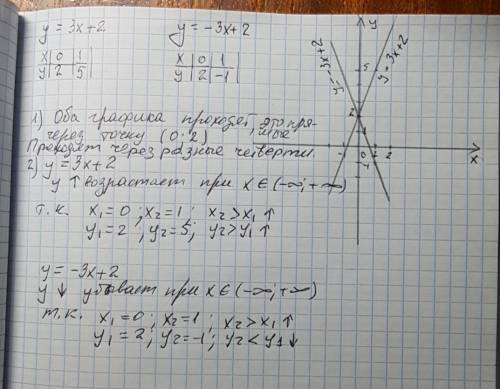 y = 3x+2
y = -3x+2
x | 0 | 1 |
y | 2 | 5 |
x | 0 | 1
y | 2 | -1 |
1) Оба графика проходят, это пря-
через точку (0; 2) мые
Проходят через разные четверти.
2) y = 3x+2
y ↑ возрастает при x ∈ (-∞; +∞)
т.к. x₁=0 ; x₂=1 ; x₂>x₁ ↑
y₁=2 ; y₂=5; y₂>y₁ ↑
y = -3x+2
y ↓ убывает при x ∈ (-∞; +∞)
т.к. x₁=0; x₂=1; x₂>x₁ ↑
y₁=2; y₂=-1; y₂<y₁ ↓
y
y=-3x+2
y=3x+2
5
2
1
-1
0
1
2
x
-1